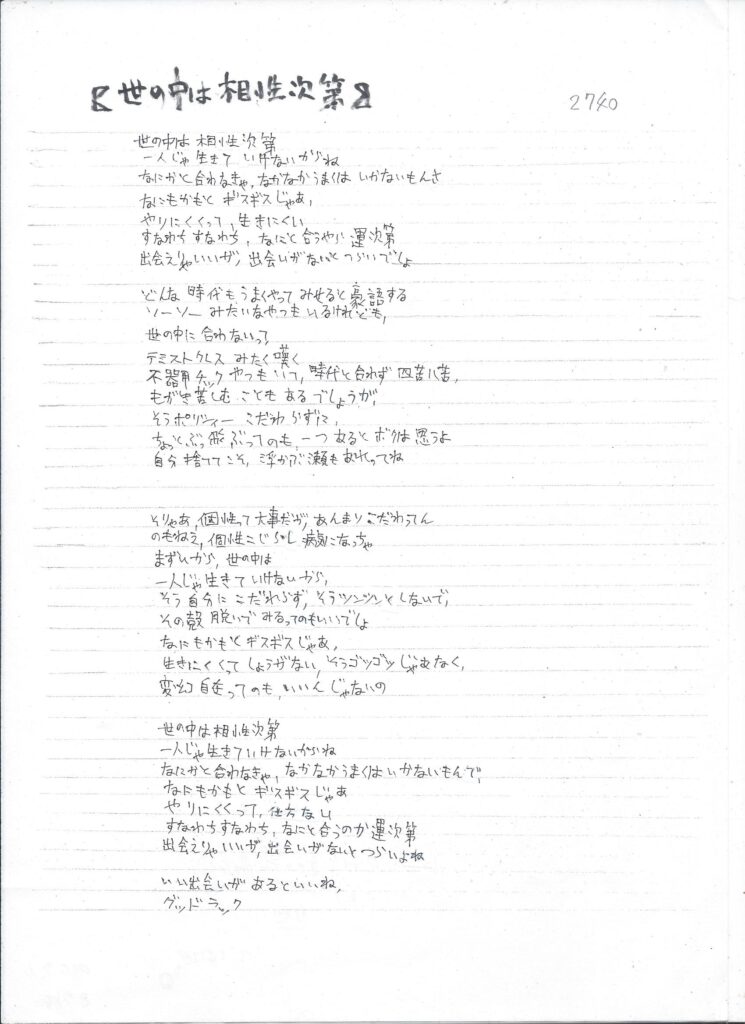 【世の中は相性次第】
2740
世の中は相性次第
一人じゃ生きていけないからね
なにかと合わなきゃ、なかなかうまくはいかないもんさ
なにもかもとギスギスじゃあ、
やりにくくって、生きにくい
すなわちすなわち、なにと合うやら運次第
出会えりゃいいが、出会いがないとつらいでしょ
どんな時代もうまくやってみせると豪語する
ソーソーみたいなやつもいるけれども、
世の中に合わないって、
テミストクレスみたく嘆く
不器用チックやつもいて、時代と合わず四苦八苦、
もがき苦しむこともあるでしょうが、
そうポリシィーこだわらずに、
ちょっとぶっ飛ぶってのも、一つあるとボクは思うよ
自分捨ててこそ、浮かぶ瀬もあれってね
そりゃあ、個性って大事だが、あんまりこだわってん
のもねえ、個性こじらし病気になっちゃ
まずいから、世の中は
一人じゃ生きていけないから、
そう自分にこだわらず、そうツンツンとしないで、
その殻脱いでみるってのもいいでしょ
なにもかもとギスギスじゃあ、
生きにくくってしょうがない、そうゴツゴツじゃあなく、
変幻自在ってのも、いいんじゃないの
世の中は相性次第
一人じゃ生きていけないからね
なにかと合わなきゃ、なかなかうまくはいかないもんで、
なにもかもとギスギスじゃあ
やりにくくって、仕方ない
すなわちすなわち、なにと合うのか運次第
出会えりゃいいが、出会いがないとつらいよね
いい出会いがあるといいね、
グッドラック